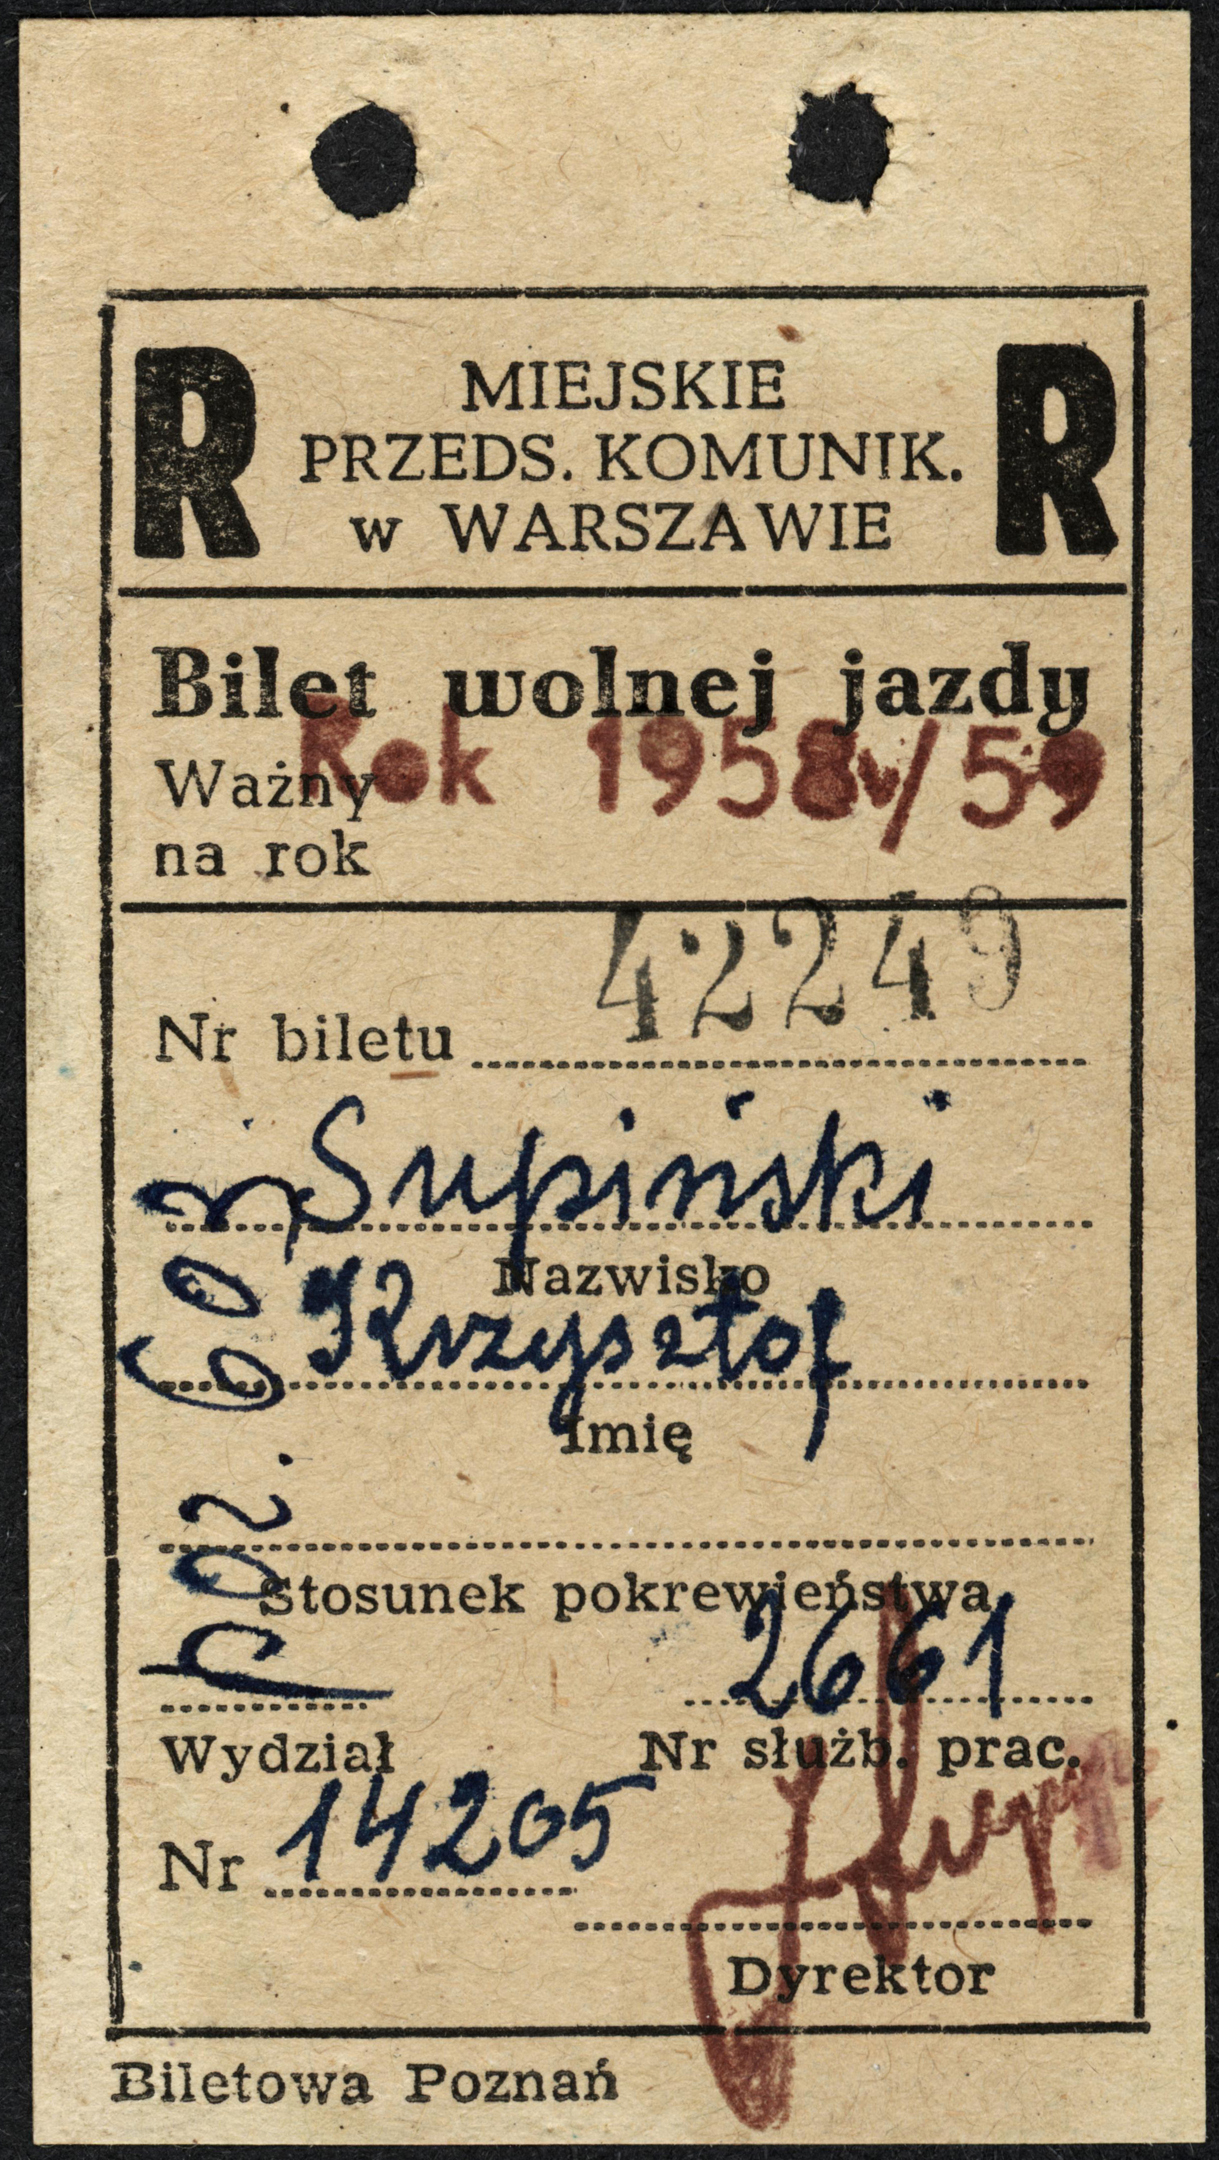 R MIEJSKIE R
PRZEDS. KOMUNIK.
w WARSZAWIE
Bilet wolnej jazdy
Rok 1958/59
Ważny
na rok
42249
Nr biletu
Supiński
Nazwisko
Krzysztof
Imię
Stosunek pokrewieństwa
2661
Wydział Nr służb. prac.
Nr 14205
Dyrektor
Biletowa Poznań